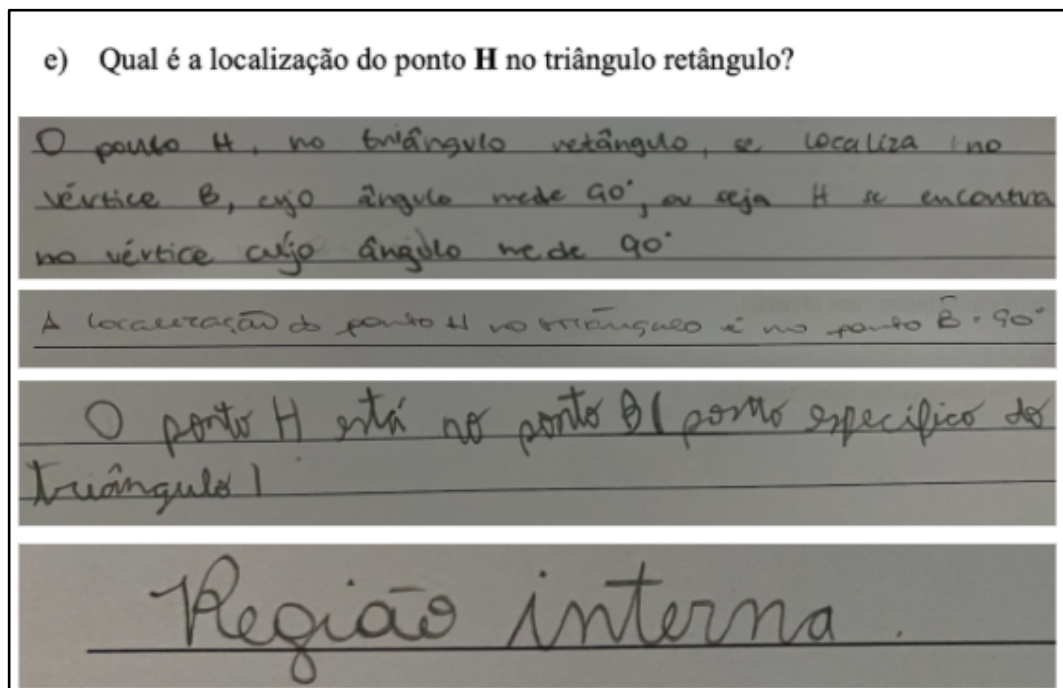 e) Qual é a localização do ponto H no triângulo retângulo?
O ponto H, no triângulo retângulo, se localiza no
vértice B, cujo ângulo mede 90°, ou seja H se encontra
no vértice cujo ângulo mede 90°
A localização do ponto H no triângulo é no ponto B̂ = 90°
O ponto H está no ponto B (ponto especifico do
triângulo)
Região interna.